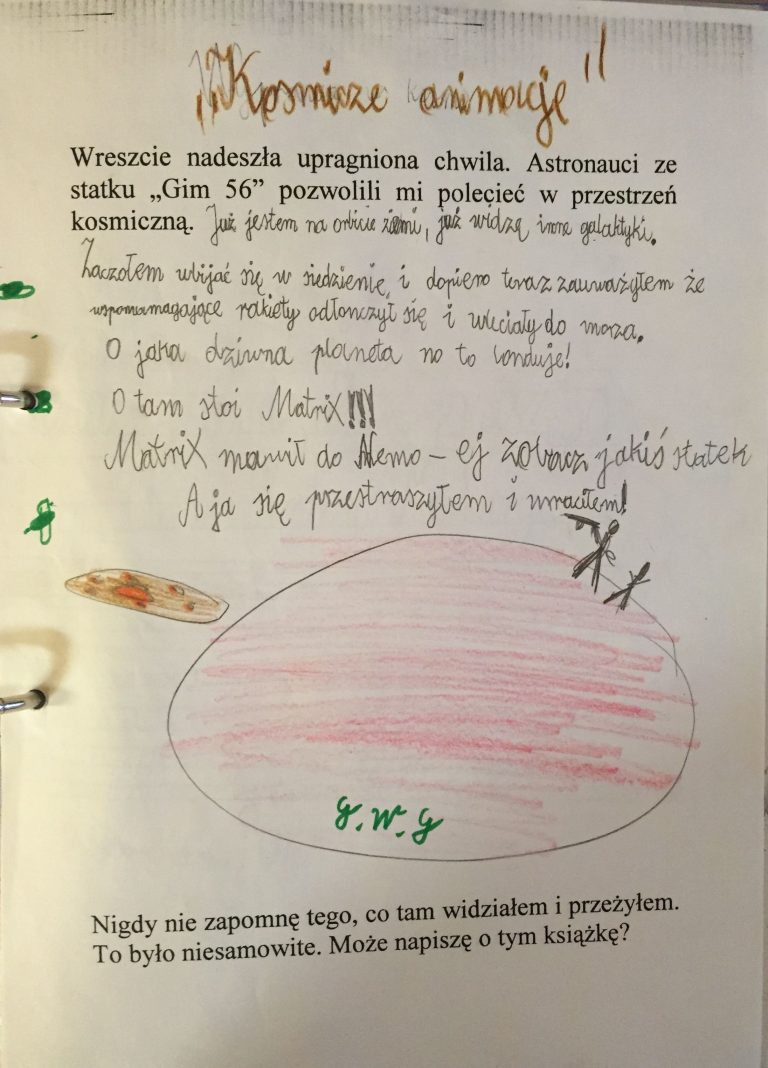 „Kosmicze animację"
Wreszcie nadeszła upragniona chwila. Astronauci ze
statku „Gim 56” pozwolili mi polecieć w przestrzeń
kosmiczną. Już jestem na orbicie ziemi, już widzę inne galaktyki.
Zaczołem wbijać się w siedzienie, i dopiero teraz zauważyłem że
wspomamagające rakiety odłonczył się i wleciały do morza.
O jaka dziwna planeta no to londuje!
O tam stoi Matrix!!!
Matrix mówił do Nemo – ej zobacz jakiś statek
A ja się przestraszyłem i wraciłem!
G.W.G
Nigdy nie zapomnę tego, co tam widziałem i przeżyłem.
To było niesamowite. Może napiszę o tym książkę?